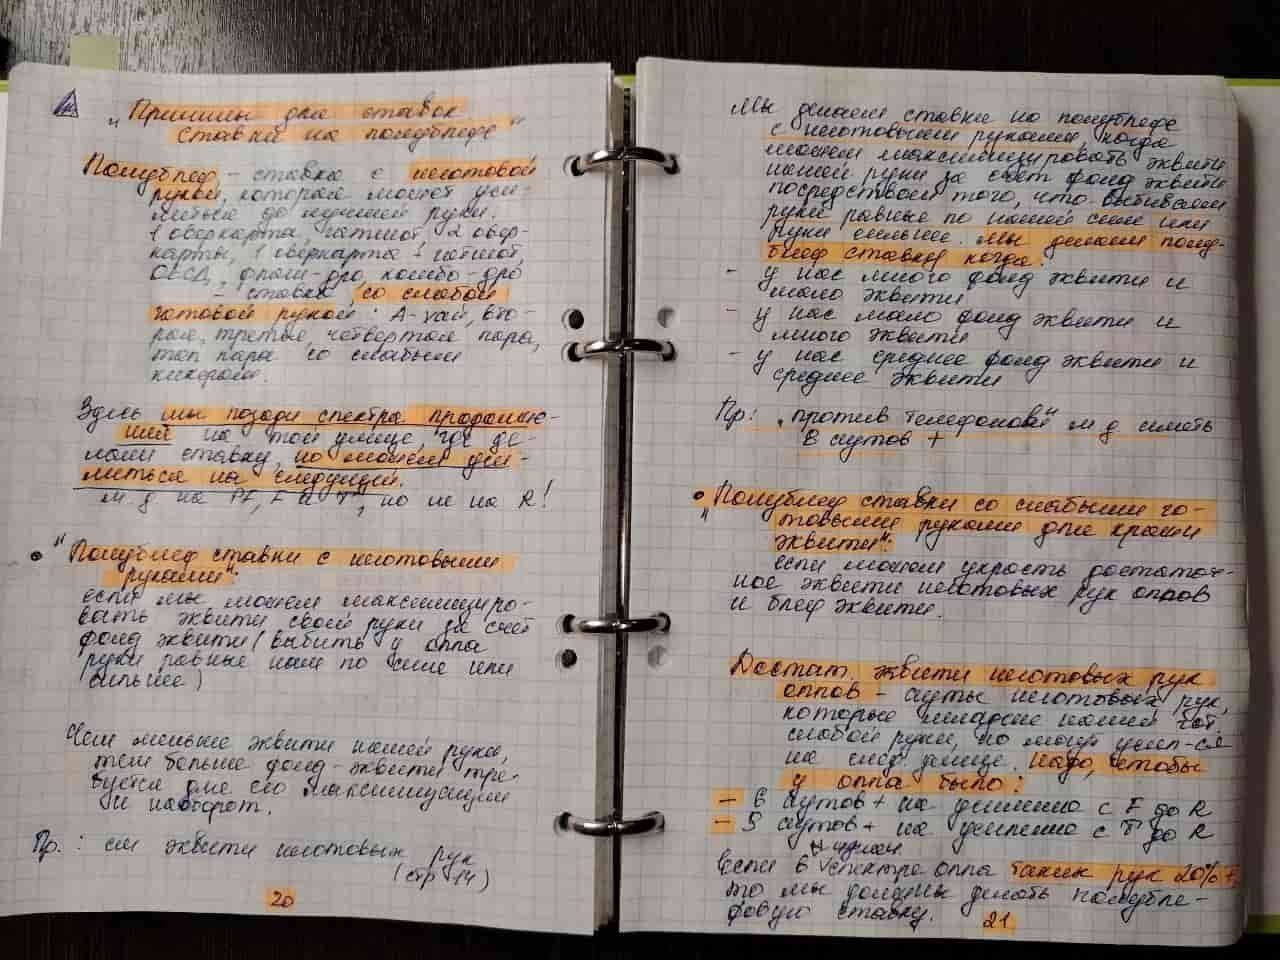 "Причины для ставок
Ставки на полублефе"
Полублеф - ставка с неготовой
рукой, которая может уси-
литься до лучшей руки.
1 оверкарта, гатшот, 2 овер-
карты, 1 оверкарта + гатшот,
ОЕСД, флаш-дро, комбо-дро
- ставка со слабой
готовой рукой: А-хай, вто-
рая, третья, четвертая пара,
топ пара со слабым
кикером.
Здесь мы позади спектра продолжаю-
щей на той улице, где де-
лаем ставку, но можем уси-
литься на следующей.
м.д на PF, F и T, но не на R!
• "Полублеф ставки с неготовыми
руками":
если мы можем максимизиро-
вать эквити своей руки за счёт
фолд эквити (выбить у оппа
руки равные нам по силе или
сильнее)
Чем меньше эквити нашей руки,
тем больше фолд-эквити тре-
буется для его максимизации
и наоборот.
Пр.: см эквити неготовых рук
(стр 14)
20
Мы делаем ставки на полублефе
с неготовыми руками, когда
можем максимизировать эквити
нашей руки за счёт фолд эквити
посредством того, что выбиваем
руки равные по нашей силе или
руки сильнее. Мы делаем полу-
блеф ставку когда:
- у нас много фолд эквити и
мало эквити
- у нас мало фолд эквити и
много эквити
- у нас среднее фолд эквити и
среднее эквити
Пр: "против телефонов" м д иметь
8 аутов +
• "Полублеф ставки со слабыми го-
товыми руками для кражи
эквити":
если можем украсть достаточ-
ное эквити неготовых рук оппов
и блеф эквити.
Достат. эквити неготовых рук
оппов - ауты неготовых рук,
которые младше нашей гот.
слабой руки, но могут усил-ся
на след улице. Надо, чтобы
у оппа было:
- 6 аутов + на усиление с F до R
- 5 аутов + на усиление с T до R
Если в спектре оппа таких рук 20% +,
то мы должны делать полубле-
фовую ставку.
21